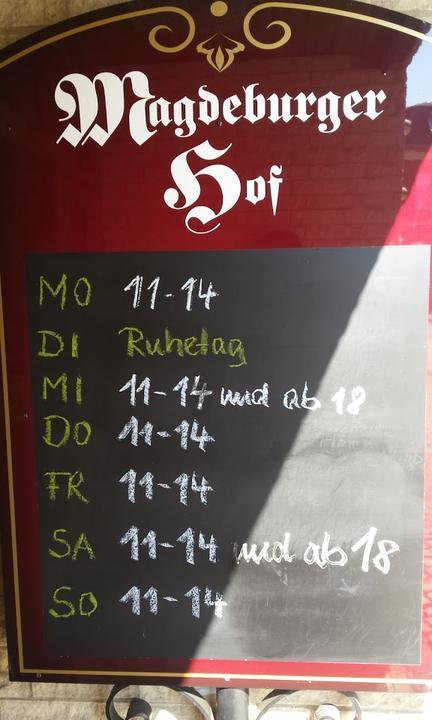 Magdeburger
Hof
MO 11-14
DI Ruhetag
MI 11-14 und ab 18
DO 11-14
FR 11-14
SA 11-14 und ab 18
SO 11-14